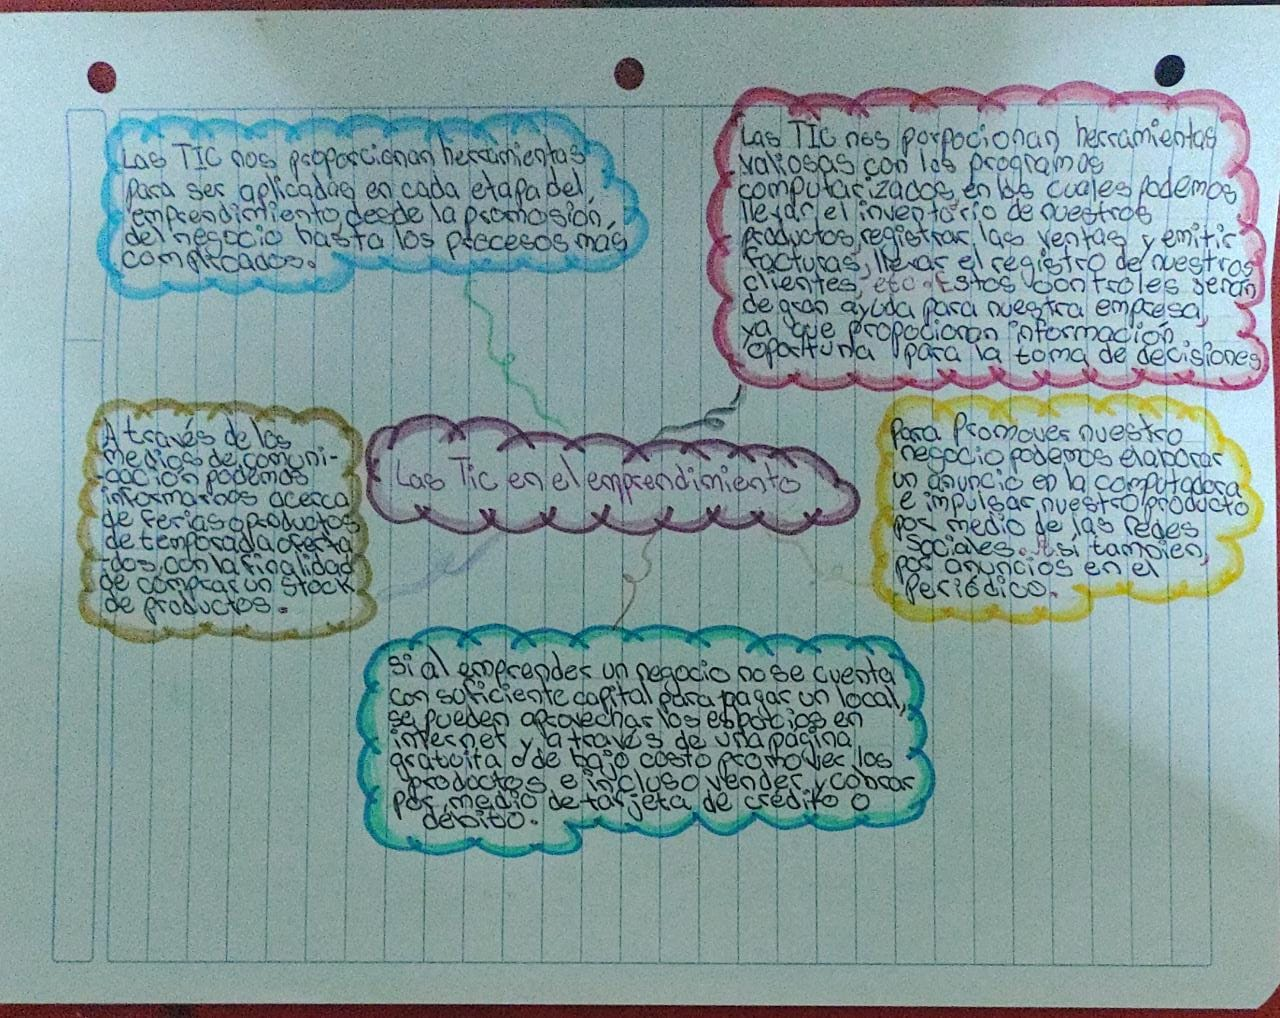 Las TIC nos proporcionan herramientas
para ser aplicadas en cada etapa del
emprendimiento, desde la promosión,
del negocio hasta los procesos más
complicados.
Las TIC nos porpocionan herramientas
valiosas con los programas
computarizados en los cuales podemos
llevar el inventario de nuestros
productos, registrar las ventas y emitir
facturas, llevar el registro de nuestros
clientes, etc. Estos controles serán
de gran ayuda para nuestra empresa,
ya que propocionan información
oportuna para la toma de decisiones
A través de los
medios de comuni-
cación podemos
informarnos acerca
de ferias o productos
de temporada oferta
-dos, con la finalidad
de comprar un stock
de productos.
Las Tic en el emprendimiento
Para Promover nuestro
negocio podemos elaborar
un anuncio en la computadora
e impulsar nuestro producto
por medio de las redes
sociales. si tambien,
por anuncios en el
Periódico.
Si al emprender un negocio no se cuenta
con suficiente capital para pagar un local,
se pueden aprovechar los espacios en
internet y a través de una página
gratuita o de bajo costo promover los
productos e incluso vender y cobrar
por medio de tarjeta de crédito o
débito.